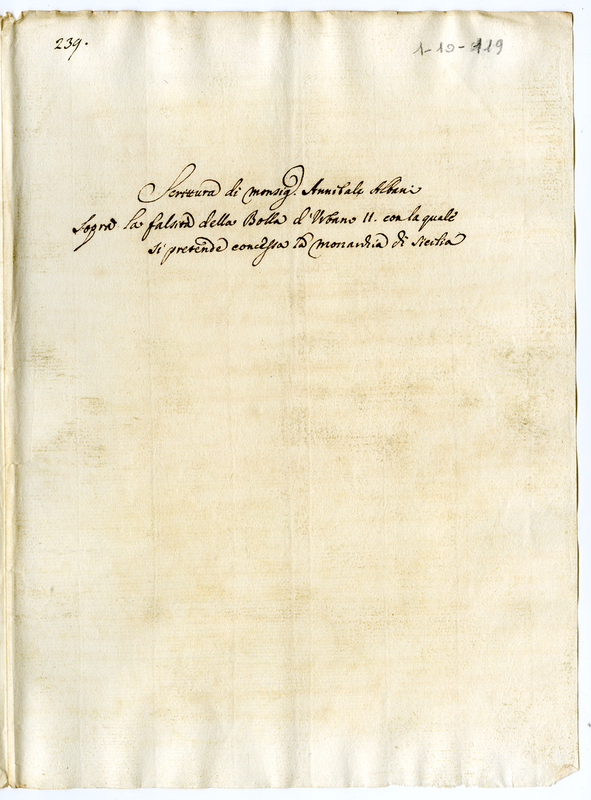 239.
1-10-119
Scrittura di monsig.r Annibale Albani
sopra la falsità della Bolla d'Urbano II. con la quale
si pretende concessa la monarchia di Sicilia